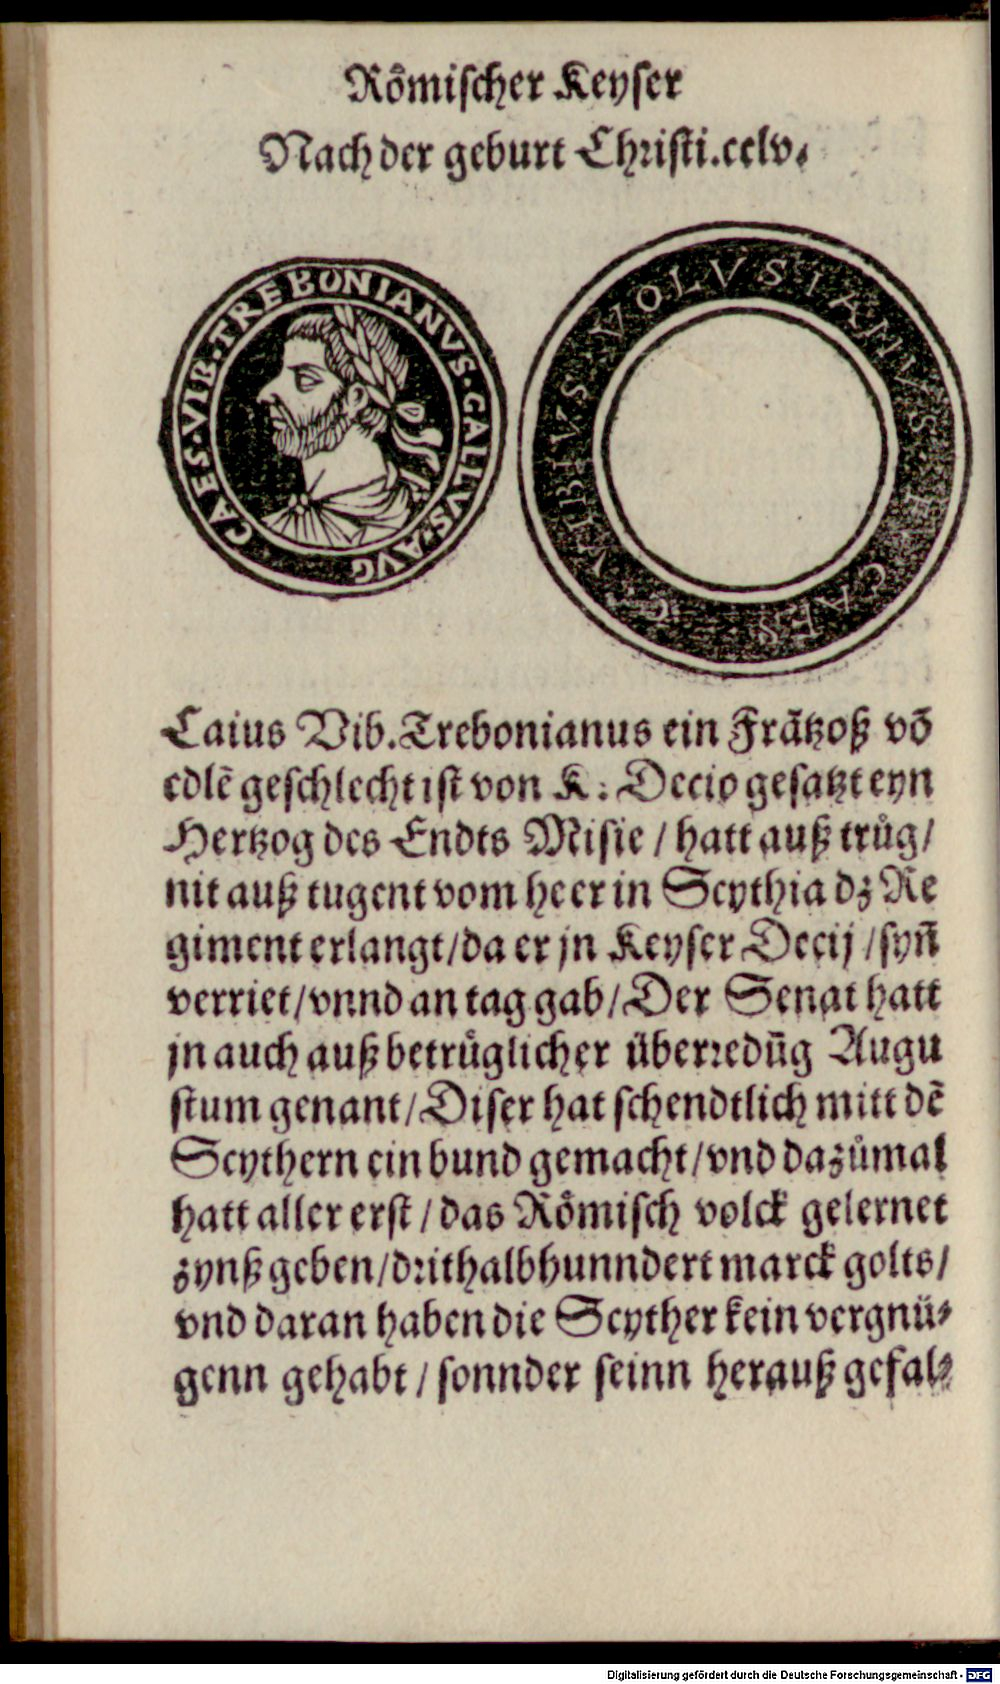 Roͤmischer Keyser
Nach der geburt Christi.cclv.
CAES·VIB·TREBONIANVS·GALLVS·AVG
C VIBIVS VOLVSIANVS F CAES
Caius Vib. Trebonianus ein Frãtzoß võ
edlẽ geschlecht ist von K: Decio gesatzt eyn
Hertzog des Endts Misie / hatt auß truͦg /
nit auß tugent vom heer in Scythia dz Re
giment erlangt/da er jn Keyser Decij /syñ
verriet/vnnd an tag gab/Der Senat hatt
jn auch auß betruͤglicher überredũg Augu
stum genant/Diser hat schendtlich mitt dẽ
Scythern ein bund gemacht/vnd dazuͦmal
hatt aller erst / das Roͤmisch volck gelernet
zynß geben/drithalbhunndert marck golts/
vnd daran haben die Scyther kein vergnü⸗
genn gehabt / sonnder seinn herauß gefal⸗
Digitalisierung gefördert durch die Deutsche Forschungsgemeinschaft - DFG